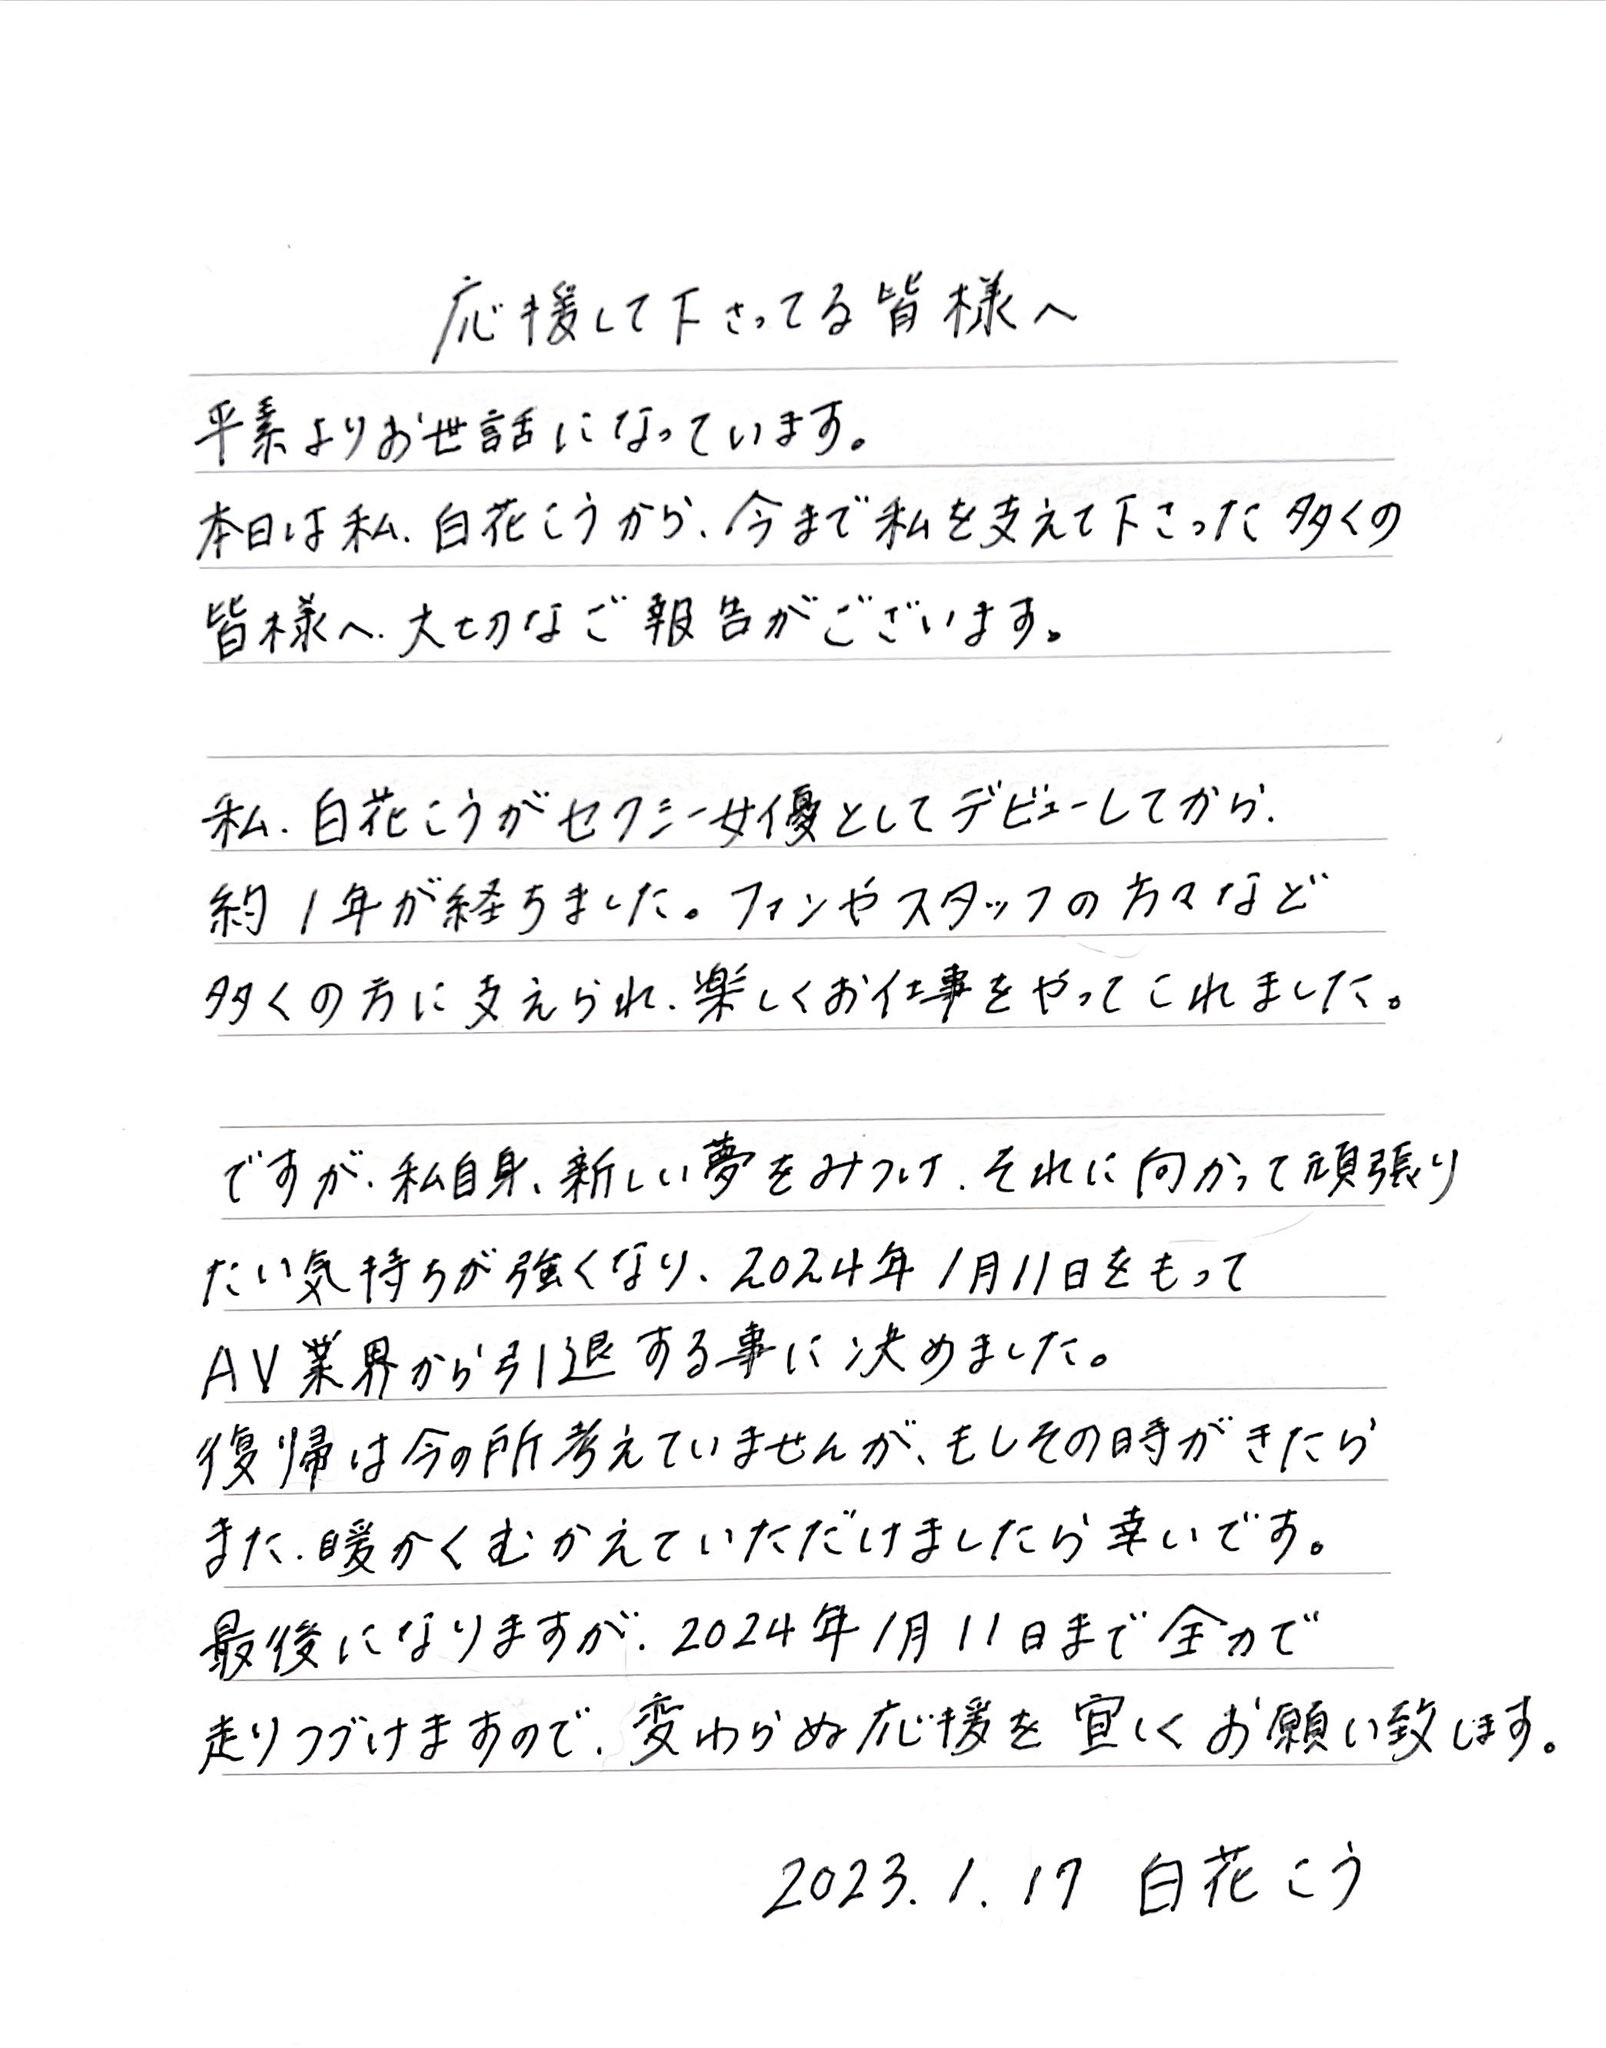 応援して下さってる皆様へ
平素よりお世話になっています。
本日は私、白花こうから、今まで私を支えて下さった多くの
皆様へ、大切なご報告がございます。
私、白花こうがセクシー女優としてデビューしてから、
約1年が経ちました。ファンやスタッフの方々など
多くの方に支えられ、楽しくお仕事をやってこれました。
ですが、私自身、新しい夢をみつけ、それに向かって頑張り
たい気持ちが強くなり、2024年1月11日をもって
AV業界から引退する事に決めました。
復帰は今の所考えていませんが、もしその時がきたら
また、暖かくむかえていただけましたら幸いです。
最後になりますが、2024年1月11日まで全力で
走りつづけますので、変わらぬ応援を宜しくお願い致します。
2023.1.17 白花こう